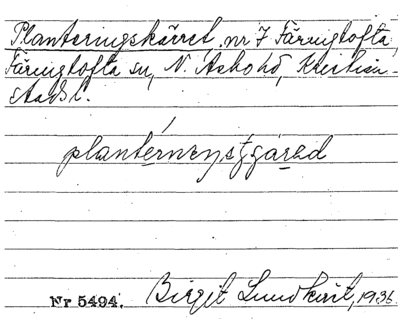 Planteringskärret, nr 7 Färingtofta,
Färingtofta sn, N. Åsbo hd, Kristian-
stads l.
Nr 5494. Birgit Lundkvist, 1936